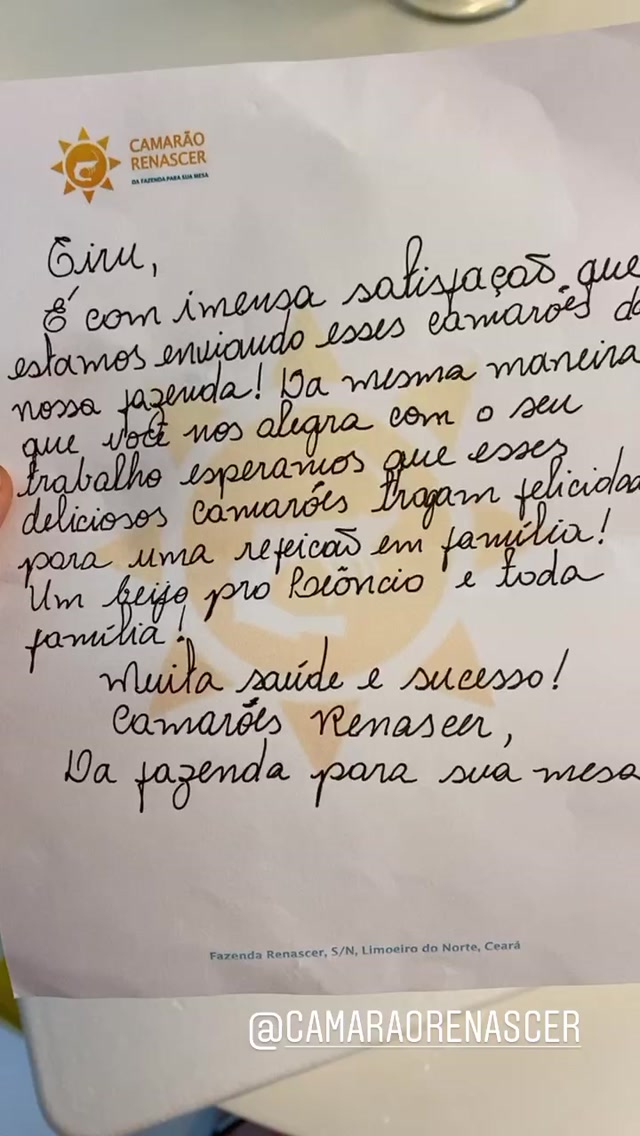 CAMARÃO
RENASCER
DA FAZENDA PARA SUA MESA
Giru,
É com imensa satisfação que
estamos enviando esses camarões da
nossa fazenda! Da mesma maneira
que você nos alegra com o seu
trabalho esperamos que esses
deliciosos camarões tragam felicidad
para uma refeicão em família!
Um beijo pro Leôncio e toda
família!
Muita saúde e sucesso!
Camarões Renascer,
Da fazenda para sua mesa
Fazenda Renascer, S/N, Limoeiro do Norte, Ceará
@CAMARAORENASCER